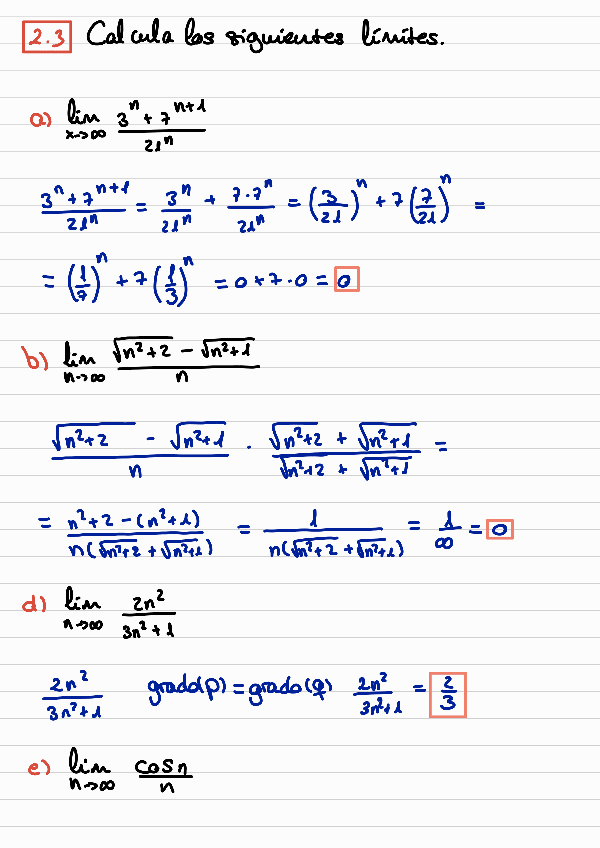 2.3 Calcula los siguientes límites.
a) lim x→∞ (3^n + 7^(n+1))/(21^n)
(3^n + 7^(n+1))/(21^n) = 3^n/21^n + (7·7^n)/(21^n) = (3/21)^n + 7(7/21)^n =
= (1/7)^n + 7(1/3)^n = 0 + 7·0 = 0
b) lim n→∞ (√(n²+2) - √(n²+1))/n
(√(n²+2) - √(n²+1))/n · (√(n²+2) + √(n²+1))/(√(n²+2) + √(n²+1)) =
= (n²+2-(n²+1))/(n(√(n²+2) + √(n²+1))) = 1/(n(√(n²+2) + √(n²+1))) = 1/∞ = 0
d) lim n→∞ 2n²/(3n²+1)
2n²/(3n²+1) grado(p) = grado(q) 2n²/(3n²+1) = 2/3
e) lim n→∞ cos n/n